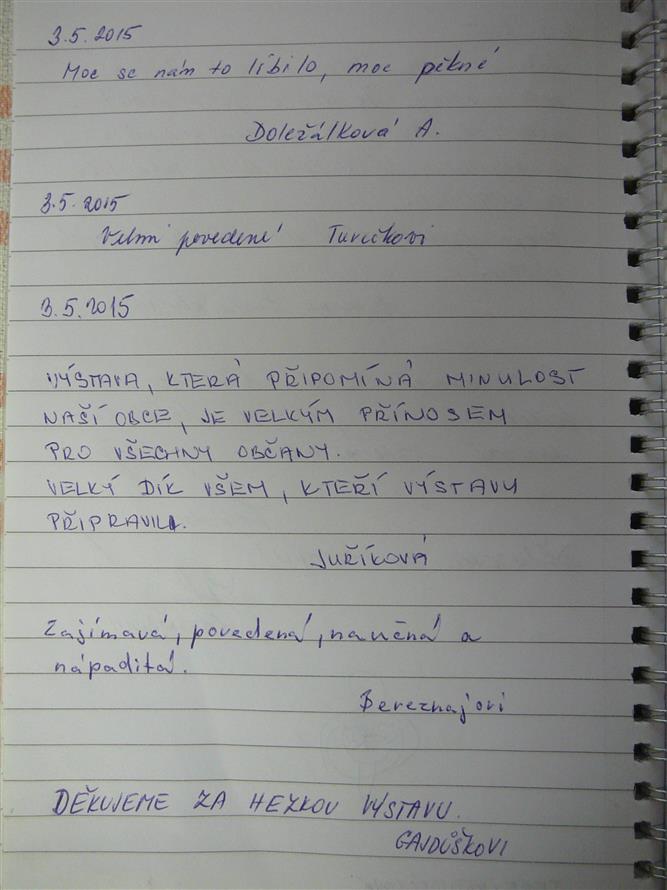 3.5.2015
Moc se nám to líbilo, moc pěkné
Doležálková A.
3.5.2015
Velmi povedené Turečkovi
3.5.2015
VÝSTAVA, KTERÁ PŘIPOMÍNÁ MINULOST
NAŠÍ OBCE, JE VELKÝM PŘÍNOSEM
PRO VŠECHNY OBČANY.
VELKÝ DÍK VŠEM, KTEŘÍ VÝSTAVU
PŘIPRAVILI.
JUŘÍKOVÁ
Zajímavá, povedená, naučná a
nápaditá.
Bereznajovi
DĚKUJEME ZA HEZKOU VÝSTAVU.
GAJDŮŠKOVI